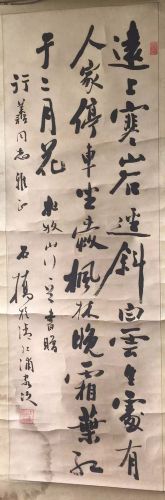 遠上寒山石逕斜白雲生處有
人家停車坐愛楓林晚霜葉紅
于二月花 杜牧山行一首書贈
同志雅正 石橋於清江浦客次